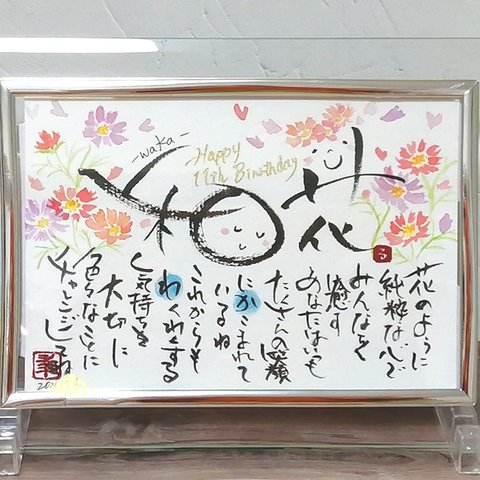 花
和
-waka-
Happy
11th Birthday
る
花のように
純粋な心で
みんなを
癒す
あなたはいつも
たくさんの笑顔
にかこまれて
いるね
これからも
わくわくする
気持ちを
大切に
色々なことに
チャレンジしてね